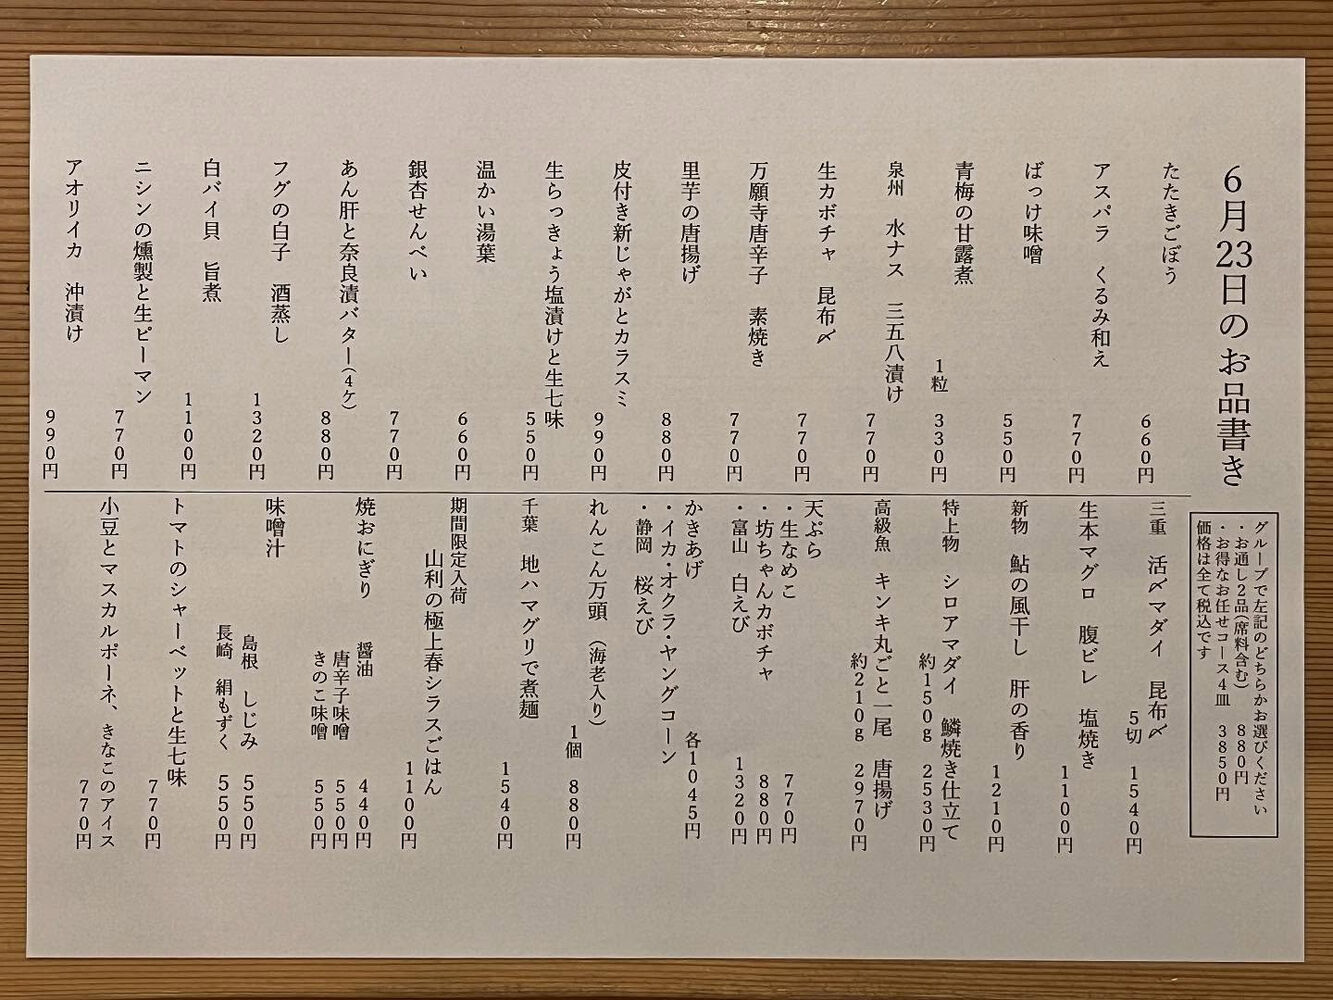 6月23日のお品書き
グループで左記のどちらかお選びください
・お通し2品(席料含む) 880円
・お得なお任せコース4皿 3850円
価格は全て税込です
たたきごぼう 660円
アスパラ くるみ和え 770円
ばっけ味噌 550円
青梅の甘露煮 1粒 330円
泉州 水ナス 三五八漬け 770円
生カボチャ 昆布〆 770円
万願寺唐辛子 素焼き 770円
里芋の唐揚げ 880円
皮付き新じゃがとカラスミ 990円
生らっきょう塩漬けと生七味 550円
温かい湯葉 660円
銀杏せんべい 770円
あん肝と奈良漬バター(4ケ) 880円
フグの白子 酒蒸し 1320円
白バイ貝 旨煮 1100円
ニシンの燻製と生ピーマン 770円
アオリイカ 沖漬け 990円
三重 活〆マダイ 昆布〆 5切 1540円
生本マグロ 腹ビレ 塩焼き 1100円
新物 鮎の風干し 肝の香り 1210円
特上物 シロアマダイ 鱗焼き仕立て
約150g 2530円
高級魚 キンキ丸ごと一尾 唐揚げ
約210g 2970円
天ぷら
・生なめこ 770円
・坊ちゃんカボチャ 880円
・富山 白えび 1320円
かきあげ 各1045円
・イカ・オクラ・ヤングコーン
・静岡 桜えび
れんこん万頭 (海老入り) 1個 880円
千葉 地ハマグリで煮麺 1540円
期間限定入荷
山利の極上春シラスごはん 1100円
焼おにぎり 醤油 440円
唐辛子味噌 550円
きのこ味噌 550円
味噌汁
島根 しじみ 550円
長崎 絹もずく 550円
トマトのシャーベットと生七味 770円
小豆とマスカルポーネ、きなこのアイス 770円